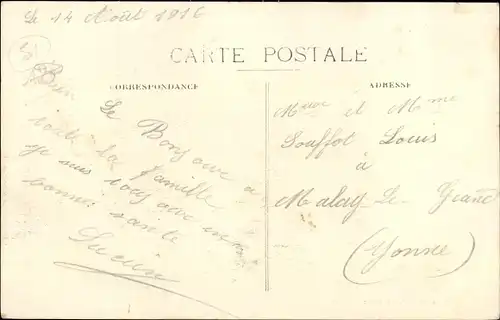 Le 14 Août 1916
CARTE POSTALE
CORRESPONDANCE
Le Bonjour a
toute la famille
je suis toujours en
bonne santé
Lucien
ADRESSE
Meur et Mme
Souffot Louis
à
Malay Le Grand
(Yonne)